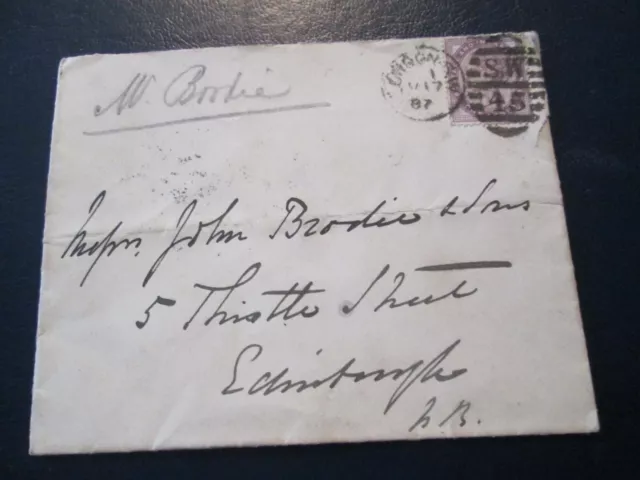 Mr. Brodie
LONDON
17
87
S.W
45
Messrs. John Brodie & Sons
5 Thistle Street
Edinburgh
N.B.